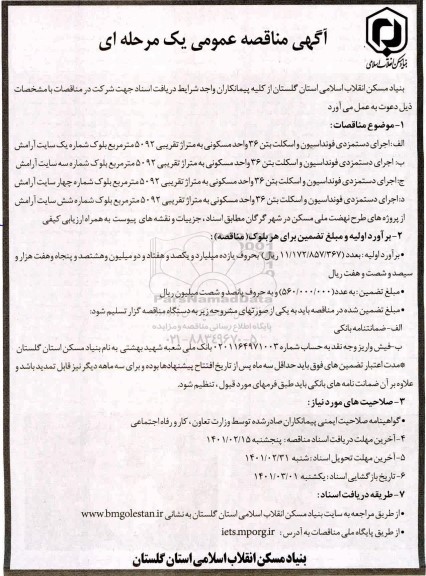 بنیاد مسکن انقلاب اسلامی
آگهی مناقصه عمومی یک مرحله ای
بنیاد مسکن انقلاب اسلامی استان گلستان از کلیه پیمانکاران واجد شرایط دریافت اسناد جهت شرکت در مناقصات با مشخصات
ذیل دعوت به عمل می آورد
۱-موضوع مناقصات:
الف:اجرای دستمزدی فونداسیون و اسکلت بتن ۳۶ واحد مسکونی به متراژ تقریبی ۵۰۹۲ مترمربع بلوک شماره یک سایت آرامش
ب: اجرای دستمزدی فونداسیون و اسکلت بتن ۳۶ واحد مسکونی به متراژ تقریبی ۵۰۹۲ مترمربع بلوک شماره سه سایت آرامش
ج:اجرای دستمزدی فونداسیون و اسکلت بتن ۳۶ واحد مسکونی به متراژ تقریبی ۵۰۹۲ مترمربع بلوک شماره چهار سایت آرامش
د:اجرای دستمزدی فونداسیون و اسکلت بتن ۳۶ واحد مسکونی به متراژ تقریبی ۵۰۹۲ مترمربع بلوک شماره شش سایت آرامش
از پروژه های طرح نهضت ملی مسکن در شهر گرگان مطابق اسناد، جزییات و نقشه های پیوست به همراه ارزیابی کیفی
۲- برآورد اولیه و مبلغ تضمین برای هر بلوک( مناقصه) :
•برآورد اولیه : بعدد (۱۱/۱۷۲/۸۵۷/۳۶۷ ریال) بحروف یازده میلیارد و یکصد و هفتاد و دو میلیون وهشتصد و پنجاه وهفت هزار و
سیصد و شصت و هفت ریال
•مبلغ تضمین : به عدد(۵۶۰/۰۰۰/۰۰۰) و به حروف پانصد و شصت میلیون ریال
•مبلغ تضمین شده در مناقصه باید به یکی از صورتهای مشروحه زیر به دستگاه مناقصه گزار تسلیم شود:
الف-ضمانتنامه بانکی
ب-فیش واریز وجه نقد به حساب شماره ۰۲۰۱۱۶۴۹۷۱۰۰۳ بانک ملی شعبه شهید بهشتی به نام بنیاد مسکن استان گلستان
*مدت اعتبار تضمین های فوق باید حداقل سه ماه پس از تاریخ افتتاح پیشنهادها بوده و برای سه ماهه دیگر نیز قابل تمدید باشد و
علاوه بر آن ضمانت نامه های بانکی باید طبق فرمهای مورد قبول، تنظیم شود.
۳- صلاحیت های مورد نیاز :
•گواهینامه صلاحیت ایمنی پیمانکاران صادر شده توسط وزارت تعاون ، کار و رفاه اجتماعی
۴-آخرین مهلت دریافت اسناد مناقصه : پنجشنبه ۱۴۰۱/۰۲/۱۵
۵-آخرین مهلت تحویل اسناد : شنبه ۱۴۰۱/۰۲/۳۱
۶-تاریخ بازگشایی اسناد: یکشنبه ۱۴۰۱/۰۳/۰۱
۷-طریقه دریافت اسناد:
•از طریق مراجعه به سایت بنیاد مسکن انقلاب اسلامی استان گلستان به نشانی www.bmgolestan.ir
•از طریق پایگاه ملی مناقصات به آدرس: iets.mporg.ir
بنیاد مسکن انقلاب اسلامی استان گلستان
ParsNamadData
پایگاه اطلاع رسانی مناقصه و مزایده
۰۲۱-۸۸۳۴۹۶۷۰-۵